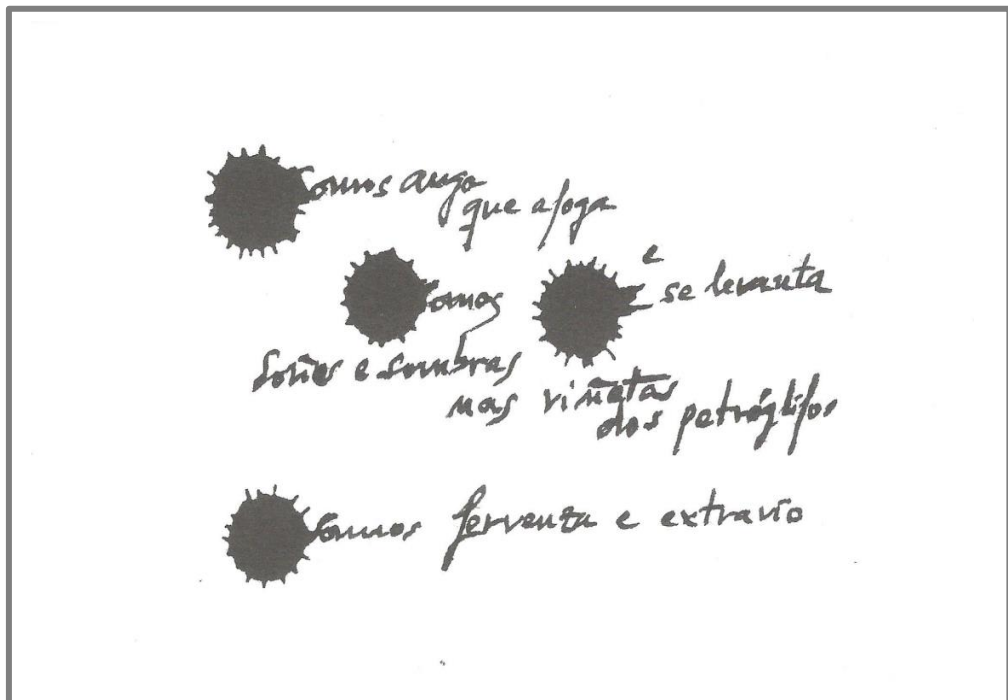 Somos auga
que afoga
e
se levanta
Somos
soños e sombras
nas viñetas
dos petróglifos
Somos fervenza e extravío